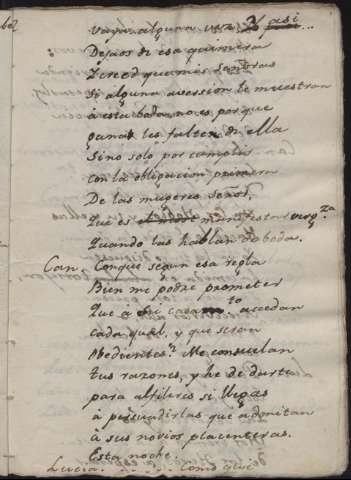 vaya alguna vez. Y asi...
Dejaos de esa quimera
Y creed que mis señoras
Si alguna aversion le muestran
à esta boda, no es porque
ganas les falten de ella
Sino solo por cumplir
con la obligacion primera
De las mugeres señor,
Que es manifestar verg.za
Quando las hablan de bodas.
Can. Conque segun esa regla
Bien me podre prometer
Que à su casam.to accedan
cada qual, y que seran
Obedientes? Me consuelan
tus razones, y he de darte
para alfileres si llegas
à persuadirlas que admitan
à sus novios placenteras
Esta noche.
Lucia. . . . . . Como